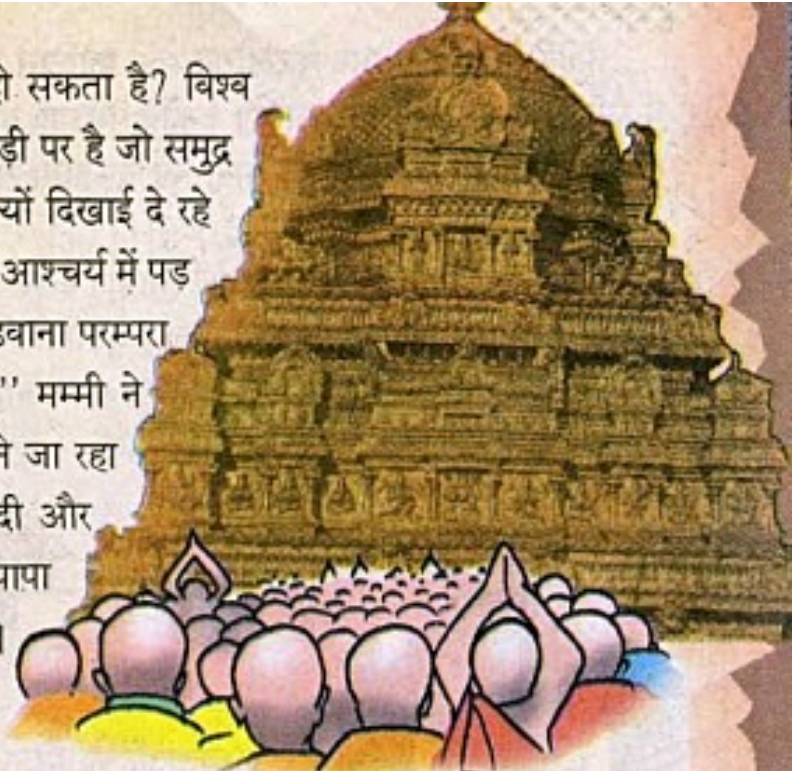 सकता है? विश्व
पर है जो समुद्र
दिखाई दे रहे
आश्चर्य में पड
परम्परा
’’ मम्मी ने
जा रहा
और
पापा